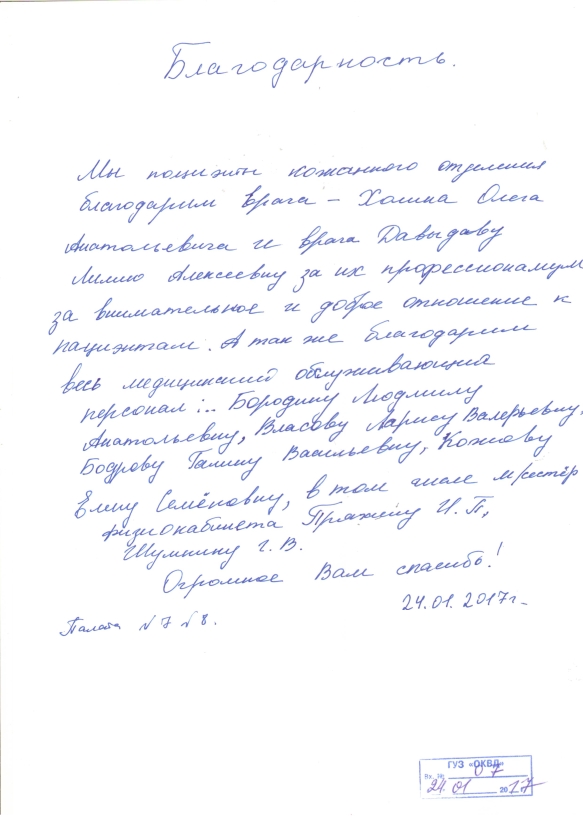 Благодарность.
Мы пациэты кожанного отделения
благодарим врача – Халина Олега
Анатольевича и врача Давыдаву
Лилию Алексеевну за их профессионализм
за внимательное и доброе отношение к
пациэнтам. А так же благодарим
весь медицинский обслуживающий
персонал:.. Бородину Людмилу
Анатольевну, Власову Ларису Валерьевну,
Бодрову Галину Васильевну,
Елену Семёновну, в том числе м/сестёр
физиокабинета И. П.,
Шумнину Г. В.
Огромное Вам спасибо!
24.01.2017г.
Палата №7 №8.
ГУЗ «ОКВД»
Вх. № 07
24.01 2017